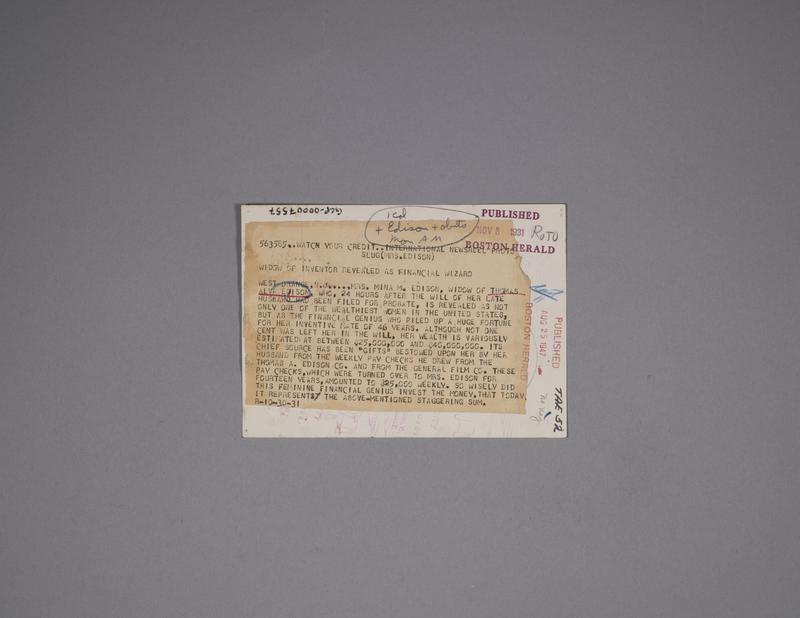 GCP-00007557
1 col
+ Edison + obits
Mon AM
PUBLISHED
NOV 8 1931
BOSTON HERALD
ROTO
563585..WATCH YOUR CREDIT..INTERNATIONAL NEWSREEL PHOTO
SLUG(MRS.EDISON)
WIDOW OF INVENTOR REVEALED AS FINANCIAL WIZARD
WEST ORANGE, N.J.....MRS. MINA M. EDISON, WIDOW OF THOMAS
ALVA EDISON, WHO, 24 HOURS AFTER THE WILL OF HER LATE
HUSBAND HAD BEEN FILED FOR PROBATE, IS REVEALED AS NOT
ONLY ONE OF THE WEALTHIEST WOMEN IN THE UNITED STATES,
BUT AS THE FINANCIAL GENIUS WHO PILED UP A HUGE FORTUNE
FOR HER INVENTIVE MATE OF 46 YEARS. ALTHOUGH NOT ONE
CENT WAS LEFT HER IN THE WILL, HER WEALTH IS VARIOUSLY
ESTIMATED AT BETWEEN $25,000,000 AND $40,000,000. ITS
CHIEF SOURCE HAS BEEN "GIFTS" BESTOWED UPON HER BY HER
HUSBAND FROM THE WEEKLY PAY CHECKS HE DREW FROM THE
THOMAS A. EDISON CO. AND FROM THE GENERAL FILM CO. THESE
PAY CHECKS, WHICH WERE TURNED OVER TO MRS. EDISON FOR
FOURTEEN YEARS, AMOUNTED TO $25,000 WEEKLY. SO WISELY DID
THIS FEMININE FINANCIAL GENIUS INVEST THE MONEY, THAT TODAY,
IT REPRESENTS THE ABOVE-MENTIONED STAGGERING SUM.
8-10-30-31
PUBLISHED
AUG 25 1947
BOSTON HERALD